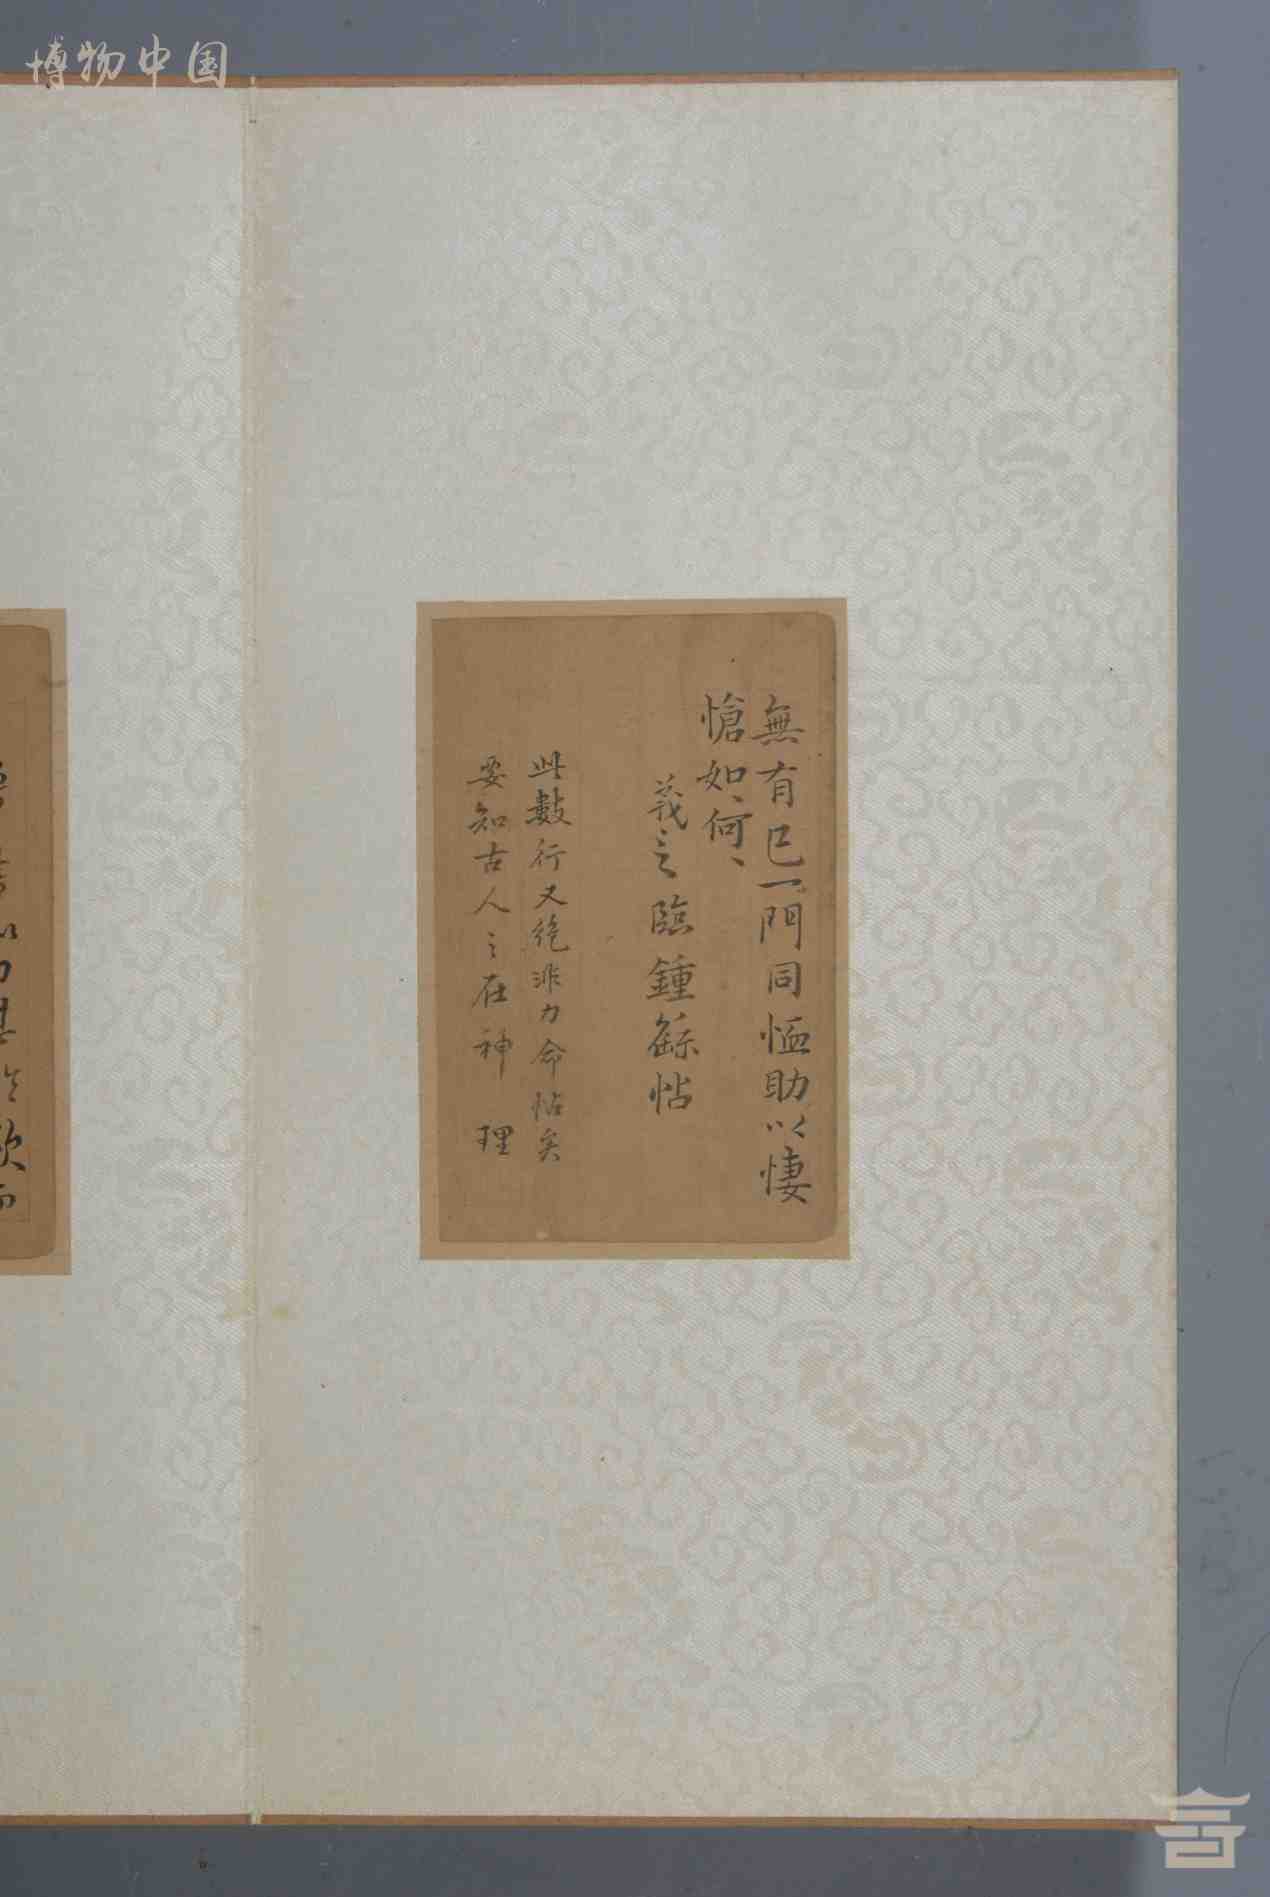 博物中国
無有已一門同恤助以悽
愴如、何、
羲之臨鍾繇帖
此數行又絕非力命帖矣
要知古人之在神理